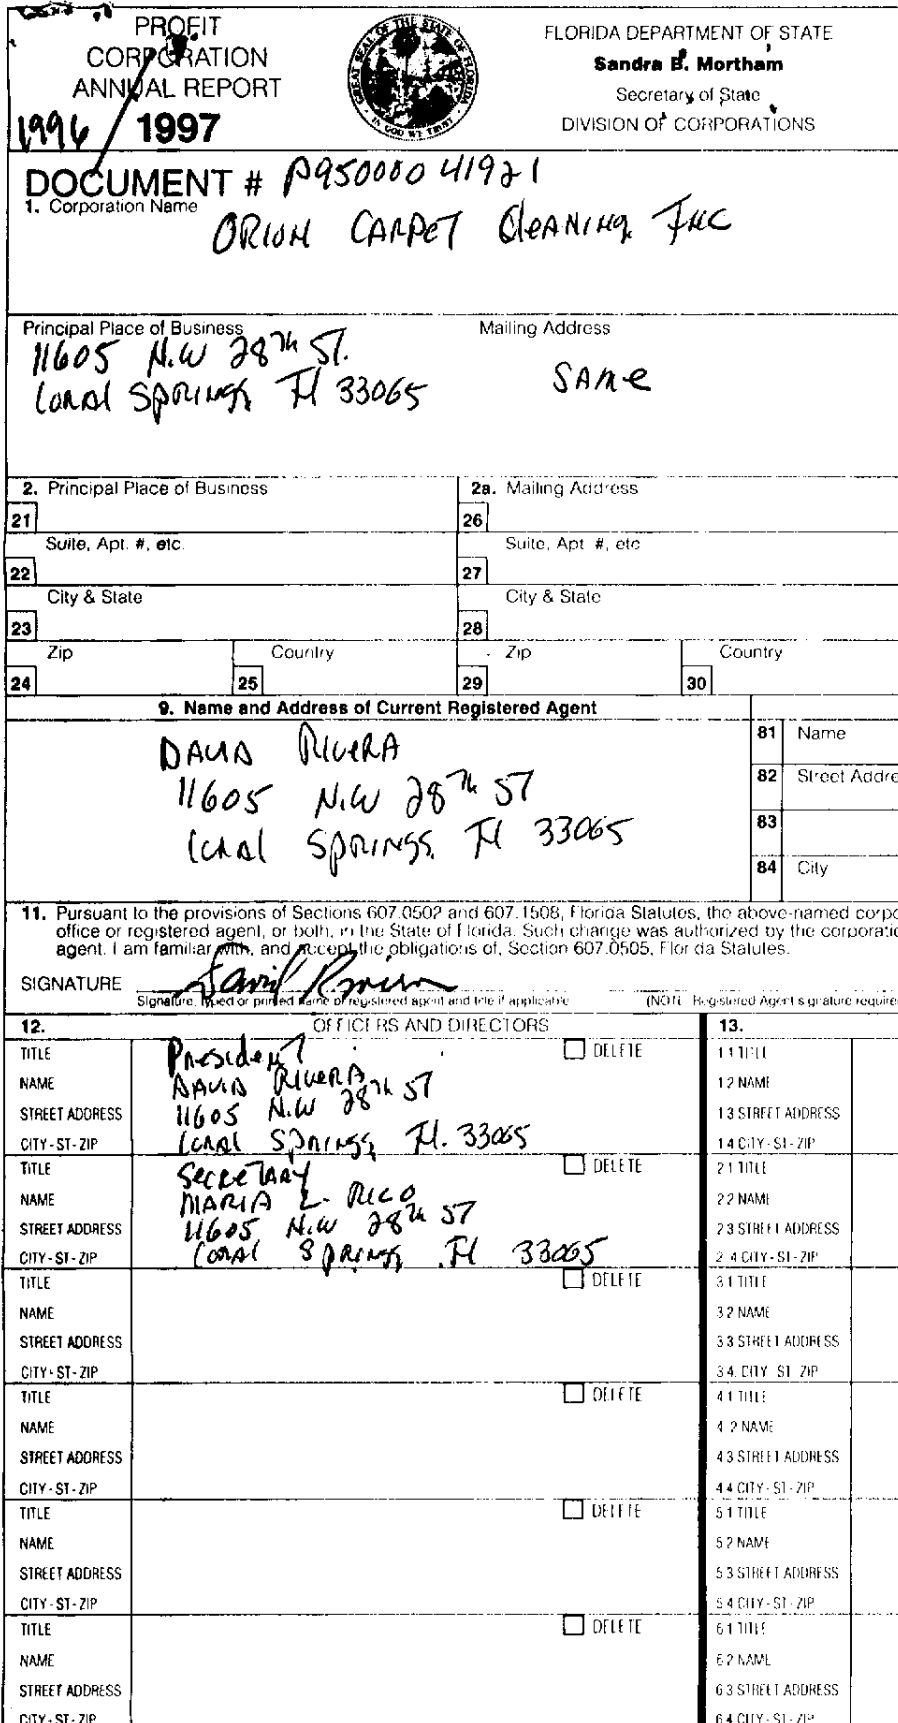 PROFIT
CORPORATION
ANNUAL REPORT
1996 / 1997
GREAT SEAL OF THE STATE OF FLORIDA
IN GOD WE TRUST
FLORIDA DEPARTMENT OF STATE
Sandra B. Mortham
Secretary of State
DIVISION OF CORPORATIONS
DOCUMENT # P95000041921
1. Corporation Name
ORION CARPET CleANING, INC
Principal Place of Business
11605 N.W 28th ST.
CORAL SPRINGS, Fl 33065
Mailing Address
SAME
2. Principal Place of Business
2a. Mailing Address
21
26
Suite, Apt. #, etc.
Suite, Apt #, etc
22
27
City & State
City & State
23
28
Zip
Country
Zip
Country
24
25
29
30
9. Name and Address of Current Registered Agent
DAVID RIVERA
11605 N.W 28th ST
CORAL SPRINGS, Fl 33065
81 Name
82 Street Addre
83
84 City
11. Pursuant to the provisions of Sections 607.0502 and 607.1508, Florida Statutes, the above-named corpo
office or registered agent, or both, in the State of Florida. Such change was authorized by the corporatio
agent. I am familiar with, and accept the obligations of, Section 607.0505, Florida Statutes.
SIGNATURE David Rivera
Signature, typed or printed name of registered agent and title if applicable
(NOTE: Registered Agent signature require
12. OFFICERS AND DIRECTORS
13.
TITLE President DELETE
NAME DAVID RIVERA
STREET ADDRESS 11605 N.W 28th ST
CITY-ST-ZIP CORAL SPRINGS, Fl. 33065
1.1 TITLE
1.2 NAME
1.3 STREET ADDRESS
1.4 CITY-ST-ZIP
TITLE SECRETARY DELETE
NAME MARIA L. RICO
STREET ADDRESS 11605 N.W 28th ST
CITY-ST-ZIP CORAL SPRINGS, Fl 33065
2.1 TITLE
2.2 NAME
2.3 STREET ADDRESS
2.4 CITY-ST-ZIP
TITLE DELETE
NAME
STREET ADDRESS
CITY-ST-ZIP
3.1 TITLE
3.2 NAME
3.3 STREET ADDRESS
3.4. CITY-ST-ZIP
TITLE DELETE
NAME
STREET ADDRESS
CITY-ST-ZIP
4.1 TITLE
4.2 NAME
4.3 STREET ADDRESS
4.4 CITY-ST-ZIP
TITLE DELETE
NAME
STREET ADDRESS
CITY-ST-ZIP
5.1 TITLE
5.2 NAME
5.3 STREET ADDRESS
5.4 CITY-ST-ZIP
TITLE DELETE
NAME
STREET ADDRESS
CITY-ST-ZIP
6.1 TITLE
6.2 NAME
6.3 STREET ADDRESS
6.4 CITY-ST-ZIP